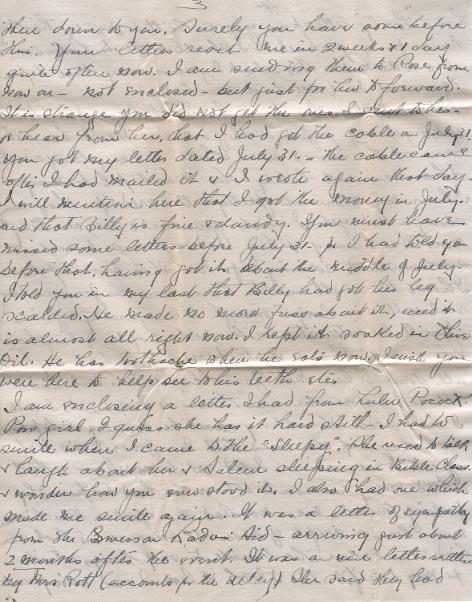 3
them down to you. Surely you have some before
this. Your letters reach me in 2 weeks & 1 day
quite often now. I am sending them to Rose from
now on - not enclosed - but just for her to forward.
It is strange you did not get the ones I sent to her
or hear from her, that I had got the cable on July 31,
you got my letter dated July 31. - The cable came
after I had mailed it & I wrote again that day.
I will mention here that I got the money in July
and that Billy is fine & dandy. You must have
missed some letters before July 31. I had told you
before that, having got it about the middle of July.
I told you in my last that Billy had got his leg
scalded. He made no more fuss about it, and it
is almost all right now. I kept it soaked in
Oil. He has toothache when he eats now. I wish you
were here to help see to his teeth etc.
I am enclosing a letter I had from Lulu Pocock
Poor girl, I guess she has it hard still - I had to
smile when I came to the "Sleepy". She used to talk
& laugh about her & Salem sleeping in Bible Class.
& wonder how you ever stood it. I also had one which
made me smile again. It was a letter of sympathy
from the Ladies Aid - arriving just about
2 months after the event. It was a nice letter written
by Mrs Rott (accounts for the delay) She said they had